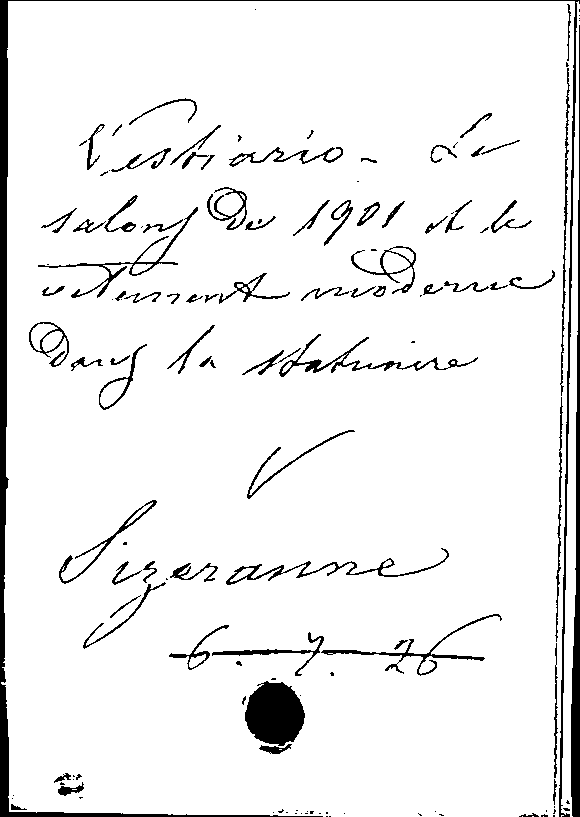 Vestiario - Le
salons de 1901 et le
vetement moderne
dans la statuaire
V
Sizeranne
6. 7. 26